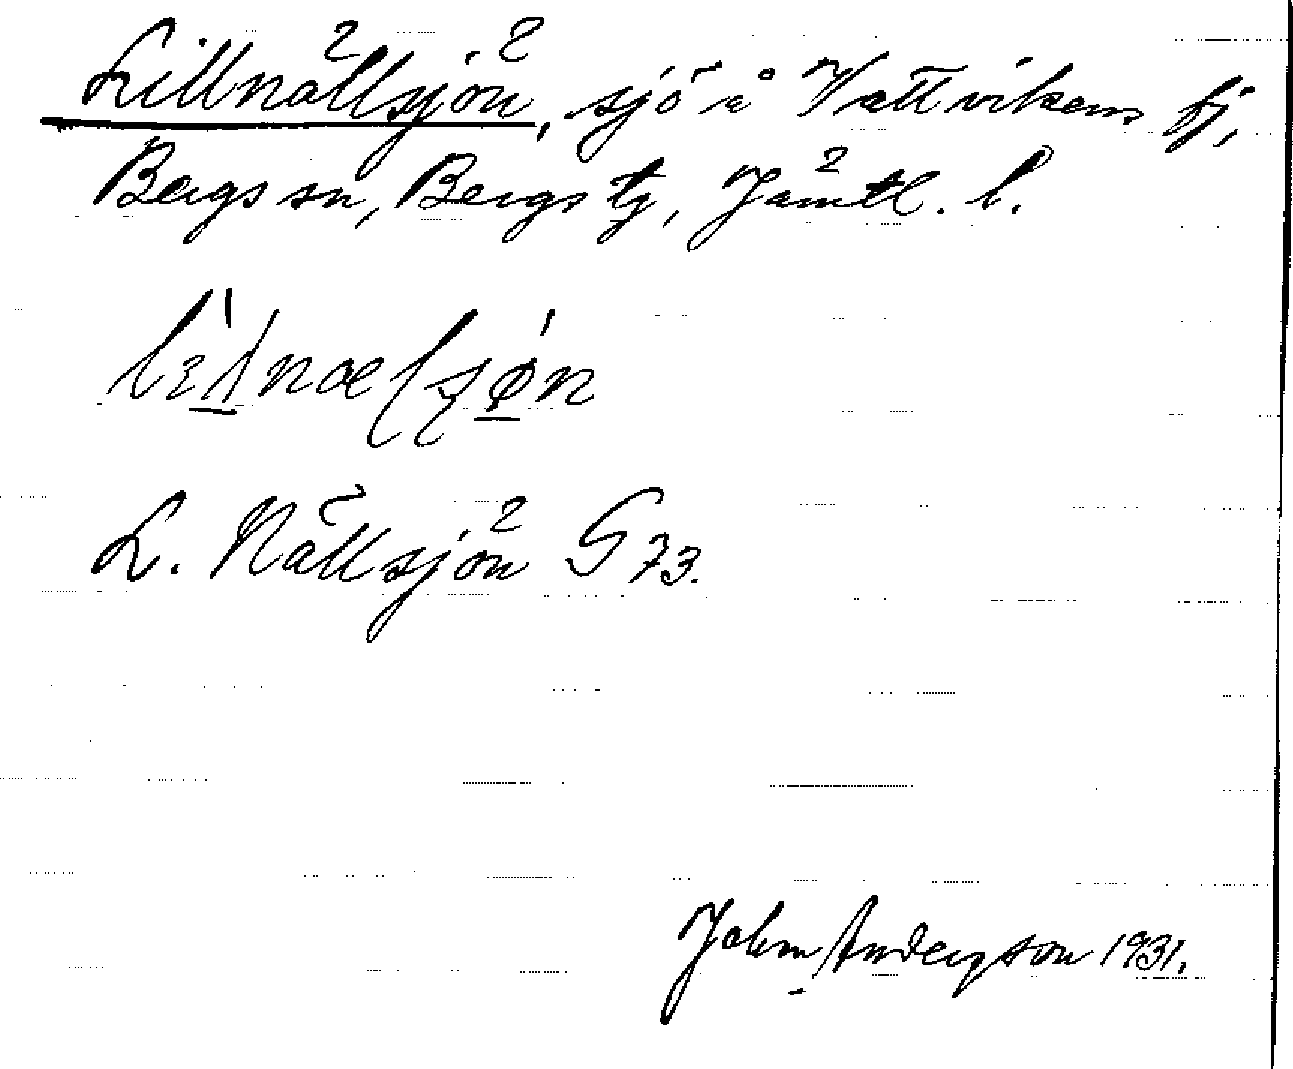 Lillnällsjön, sjö å Vattvikens fj,
Bergs sn, Bergs tg, Jämtl. l.
L. Nällsjön G 73.
John Andersson 1931.